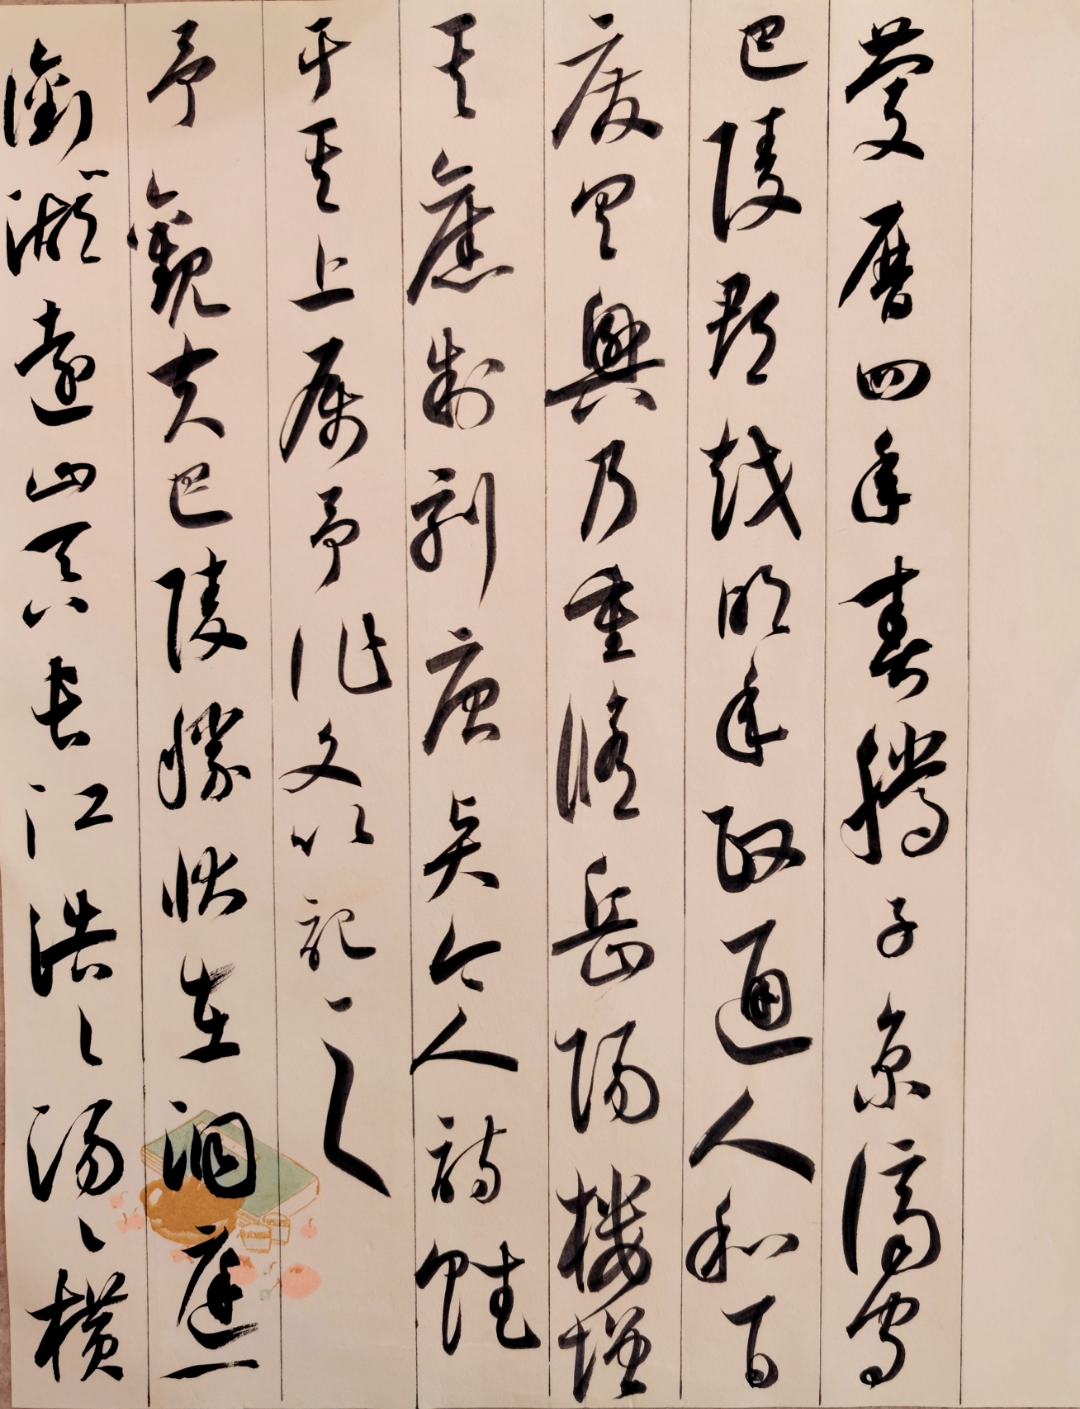 慶曆四年春滕子京謫守
巴陵郡越明年政通人和百
廢具興乃重脩岳陽樓增
其舊制刻唐賢今人詩賦
于其上属予作文以記之
予觀夫巴陵勝狀在洞庭一
銜湖遠山吞長江浩々湯々橫